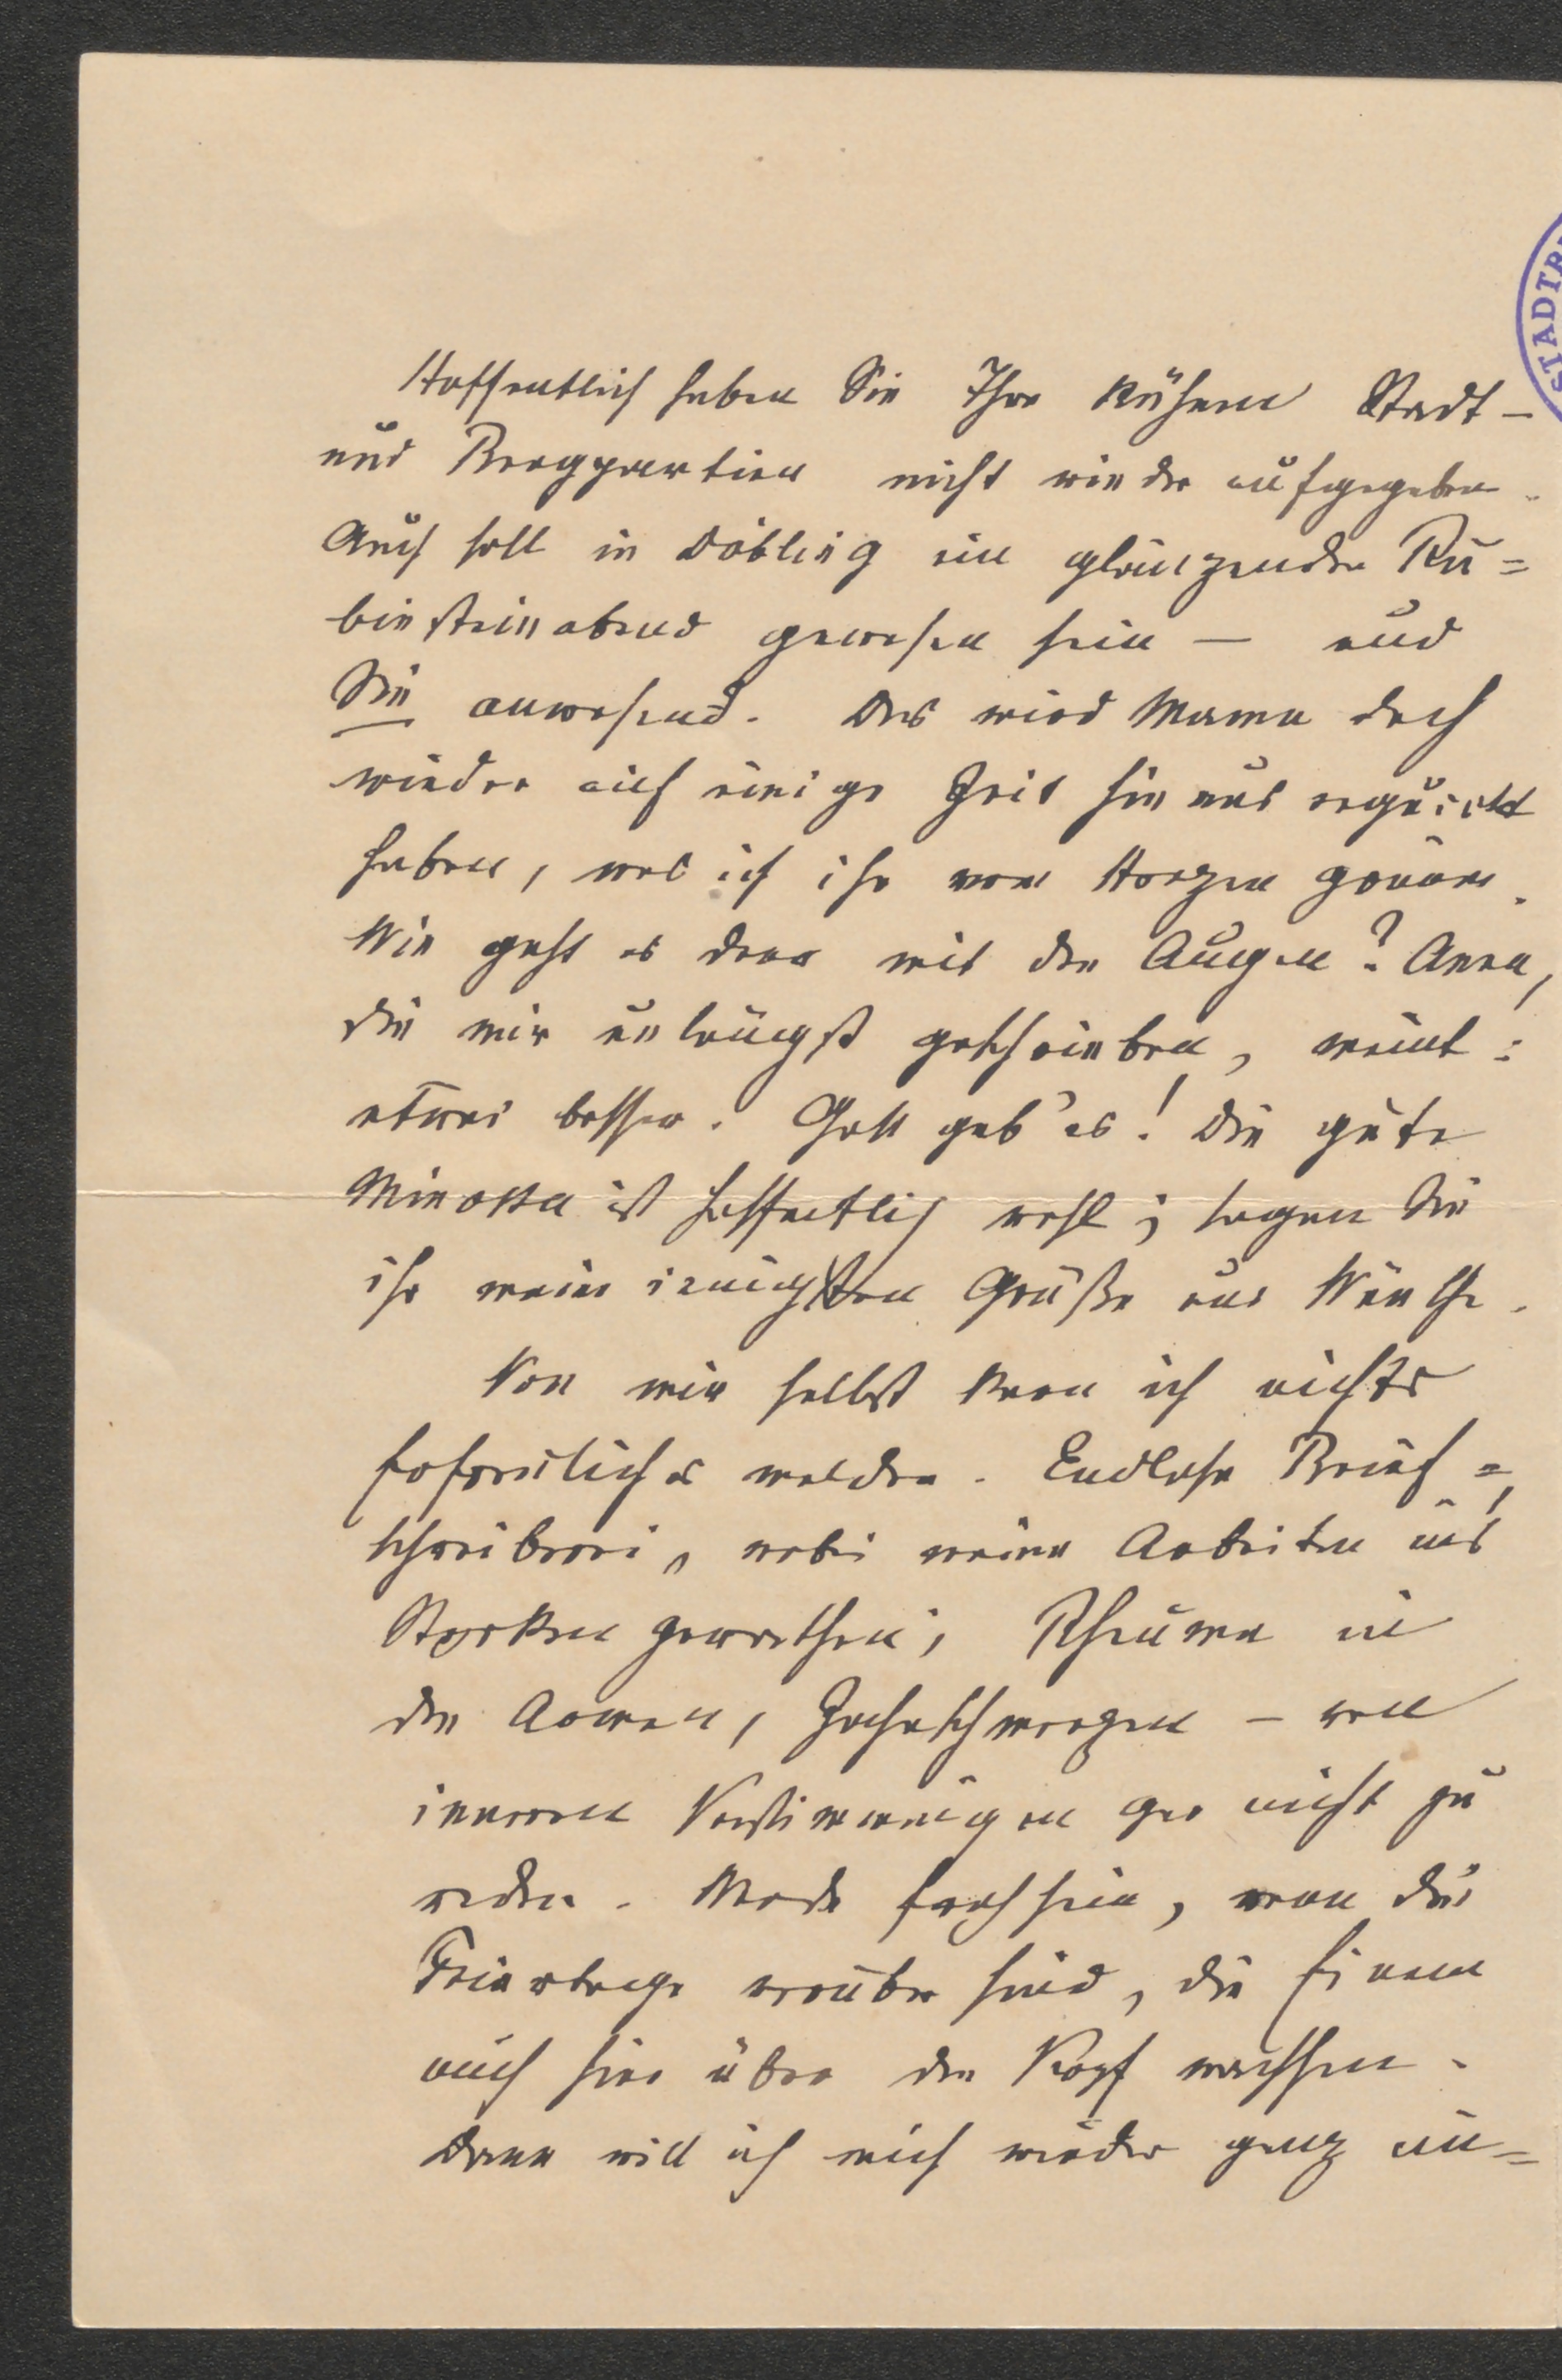 STADTB
Hoffentlich haben Sie Ihre kühnen Stadt-
und Bergpartien nicht wieder aufgegeben.
Auch soll in Döbling ein glänzender Ru=
binsteinabend gewesen sein — und
Sie anwesend. Das wird Mama doch
wieder auf einige Zeit hinaus erquickt
haben, was ich ihr von Herzen gönne.
Wie geht es denn mit den Augen? Anna,
die mir unlängst geschrieben, meint:
etwas besser. Gott geb' es! Die gute
Minona ist hoffentlich wohl; sagen Sie
ihr meine innigsten Grüße und Wünsche.
Von mir selbst kann ich nichts
Erfreuliches melden. Endlose Brief=
schreiberei, wobei meine Arbeiten ins
Stocken gerathen; Rheuma in
den Armen, Zahnschmerzen — von
inneren Verstimmungen gar nicht zu
reden. Werde froh sein, wenn die
Feiertage vorüber sind, die Einem
auch hier über den Kopf wachsen.
Dann will ich mich wieder ganz ein=